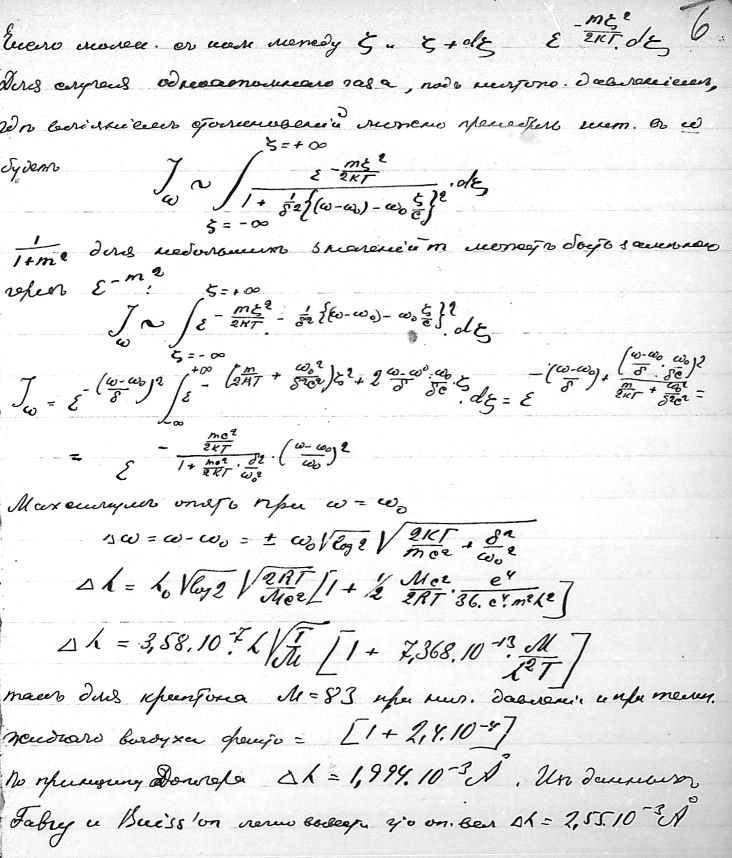 6
Число молек. съ ком между ξ и ξ + dξ ε^{-mξ²/2KT}.dξ
Для случая одноатомнаго газа, подъ ничтожн. давленіем,
где вліяніемъ столкновеній можно пренебречь инт. въ ω
будетъ J_ω ~ ∫_{ξ=-∞}^{ξ=+∞} ε^{-mξ²/2KT} / (1 + 1/δ² {(ω-ω₀) - ω₀ ξ/c}²) .dξ
1/(1+m²) для небольшихъ значеній m можетъ быть замѣнено
через ε^{-m²}:
J_ω ~ ∫_{ξ=-∞}^{ξ=+∞} ε^{-mξ²/2KT - 1/δ² {(ω-ω₀) - ω₀ ξ/c}²} .dξ
J_ω = ε^{-((ω-ω₀)/δ)²} ∫_{-∞}^{+∞} ε^{-(m/2KT + ω₀²/δ²c²)ξ² + 2 (ω-ω⁰)/δ . ω₀/δc . ξ} .dξ = ε^{-((ω-ω₀)/δ) + ((ω-ω₀)/δ . ω₀/δc)² / (m/2KT + ω₀²/δ²c²)} =
= ε^{- (mc²/2KT) / (1 + mc²/2KT . δ²/ω₀²) . ((ω-ω₀)/ω₀)²}
Максимумъ опять при ω = ω₀
Δω = ω - ω₀ = ± ω₀ √log 2 √(2KT/mc² + δ²/ω₀²)
Δλ = λ₀ √log 2 √(2RT/Mc²) [1 + 1/2 Mc²/2RT . e⁴/(36.c⁴.m²λ²)]
Δλ = 3,58.10⁻⁷.λ √(T/M) [1 + 7,368.10⁻¹³. M/(λ²T)]
такъ для криптона M = 83 при нич. давлені и при темп.
жидкаго воздуха = [1 + 2,4.10⁻⁴]
По принципу Доплера Δλ = 1,994.10⁻³ Å. Из данныхъ
Fabry и Buiss'on легко Δλ = 2,55.10⁻³ Å